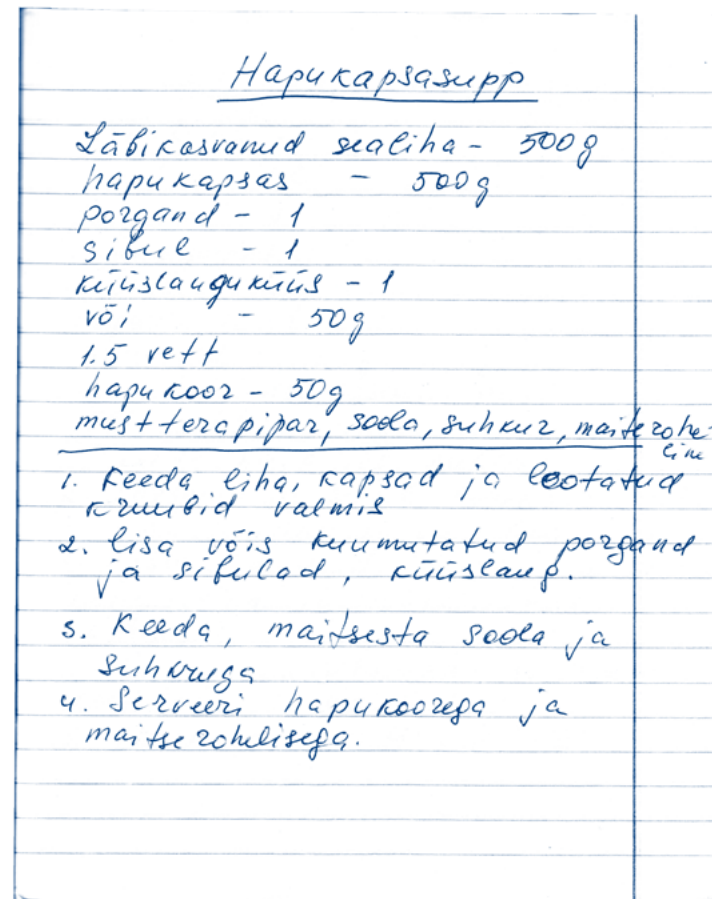 Hapukapsasupp
Läbikasvanud sealiha - 500g
hapukapsas - 500g
porgand - 1
sibul - 1
küüslauguküüs - 1
või - 50g
1.5 vett
hapukoor - 50g
must terapipar, soola, suhkur, maiterohe-
line
1. Keeda liha, kapsad ja leotatud
kruubid valmis
2. lisa võis kuumutatud porgand
ja sibulad, küüslaug.
3. Keeda, maitsesta soola ja
suhkruga
4. Serveeri hapukoorega ja
maitserohelisega.